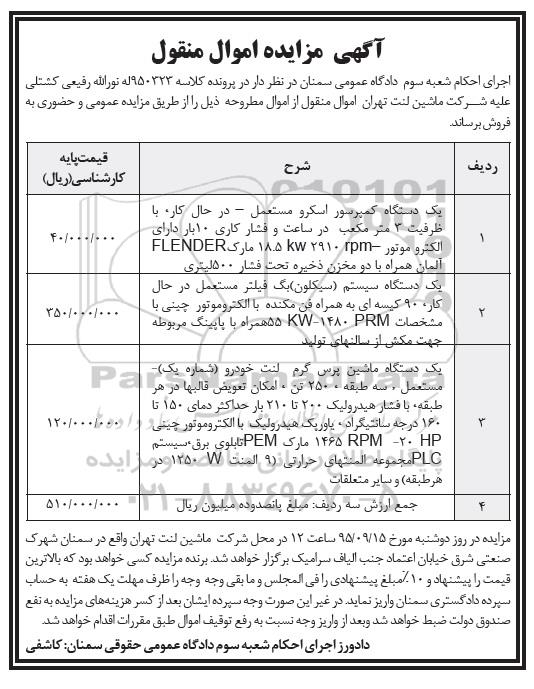 آگهی مزایده اموال منقول
اجرای احکام شعبه سوم دادگاه عمومی سمنان در نظر دار در پرونده کلاسه ۹۵۰۳۲۳له نورالله رفیعی کشتلی
علیه شرکت ماشین لنت تهران اموال منقول از اموال مطروحه ذیل را از طریق مزایده عمومی و حضوری به
فروش برساند.
ردیف
شرح
قیمت‌پایه
کارشناسی(ریال)
۱
یک دستگاه کمپرسور اسکرو مستعمل – در حال کار، با
ظرفیت ۳ متر مکعب در ساعت و فشار کاری ۱۰بار دارای
الکترو موتور –۱۸.۵ kw ۲۹۱۰ rpm مارکFLENDER
آلمان همراه با دو مخزن ذخیره تحت فشار ۵۰۰لیتری
۴۰/۰۰۰/۰۰۰
۲
یک دستگاه سیستم (سیکلون)بگ فیلتر مستعمل در حال
کار، ۹۰ کیسه ای به همراه فن مکنده با الکتروموتور چینی با
مشخصات ۵۵ KW-۱۴۸۰ PRMهمراه با پایپنگ مربوطه
جهت مکش از سالنهای تولید
۳۵۰/۰۰۰/۰۰۰
۳
یک دستگاه ماشین پرس گرم لنت خودرو (شماره یک)-
مستعمل ، سه طبقه ، ۲۵۰ تن ، امکان تعویض قالبها در هر
طبقه، با فشار هیدرولیک ۲۰۰ تا ۲۱۰ بار حداکثر دمای ۱۵۰ تا
۱۶۰ درجه سانتیگراد ، یاورپک هیدرولیک با الکتروموتور چینی
۱۴۶۵ RPM -۲۰ HP مارک PEMتابلوی برق،سیستم
PLCمجموعه المنتهای حرارتی (۹ المنت ۱۲۵۰ W در
هرطبقه) و سایر متعلقات
۱۲۰/۰۰۰/۰۰۰
۴
جمع ارزش سه ردیف: مبلغ پانصدوده میلیون ریال
۵۱۰/۰۰۰/۰۰۰
مزایده در روز دوشنبه مورخ ۹۵/۰۹/۱۵ ساعت ۱۲ در محل شرکت ماشین لنت تهران واقع در سمنان شهرک
صنعتی شرق خیابان اعتماد جنب الیاف سرامیک برگزار خواهد شد. برنده مزایده کسی خواهد بود که بالاترین
قیمت را پیشنهاد و ۱۰٪مبلغ پیشنهادی را فی المجلس و ما بقی وجه وجه را ظرف مهلت یک هفته به حساب
سپرده دادگستری سمنان واریز نماید. در غیر این صورت وجه سپرده ایشان بعد از کسر هزینه‌های مزایده به نفع
صندوق دولت ضبط خواهد شد وبعد از واریز وجه نسبت به رفع توقیف اموال طبق مقررات اقدام خواهد شد.
دادورز اجرای احکام شعبه سوم دادگاه عمومی حقوقی سمنان: کاشفی
۰۲۱-۸۸۳۴۹۶۷۰-۵